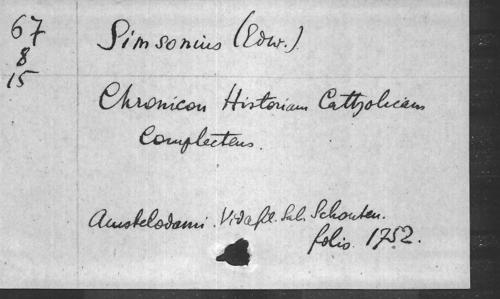 67
8
15
Simsonius (Edw.)
Chronicon Historiam Catholicam
Complectens.
Amstelodami. Vid. Sal. Schouten.
folio. 1752.